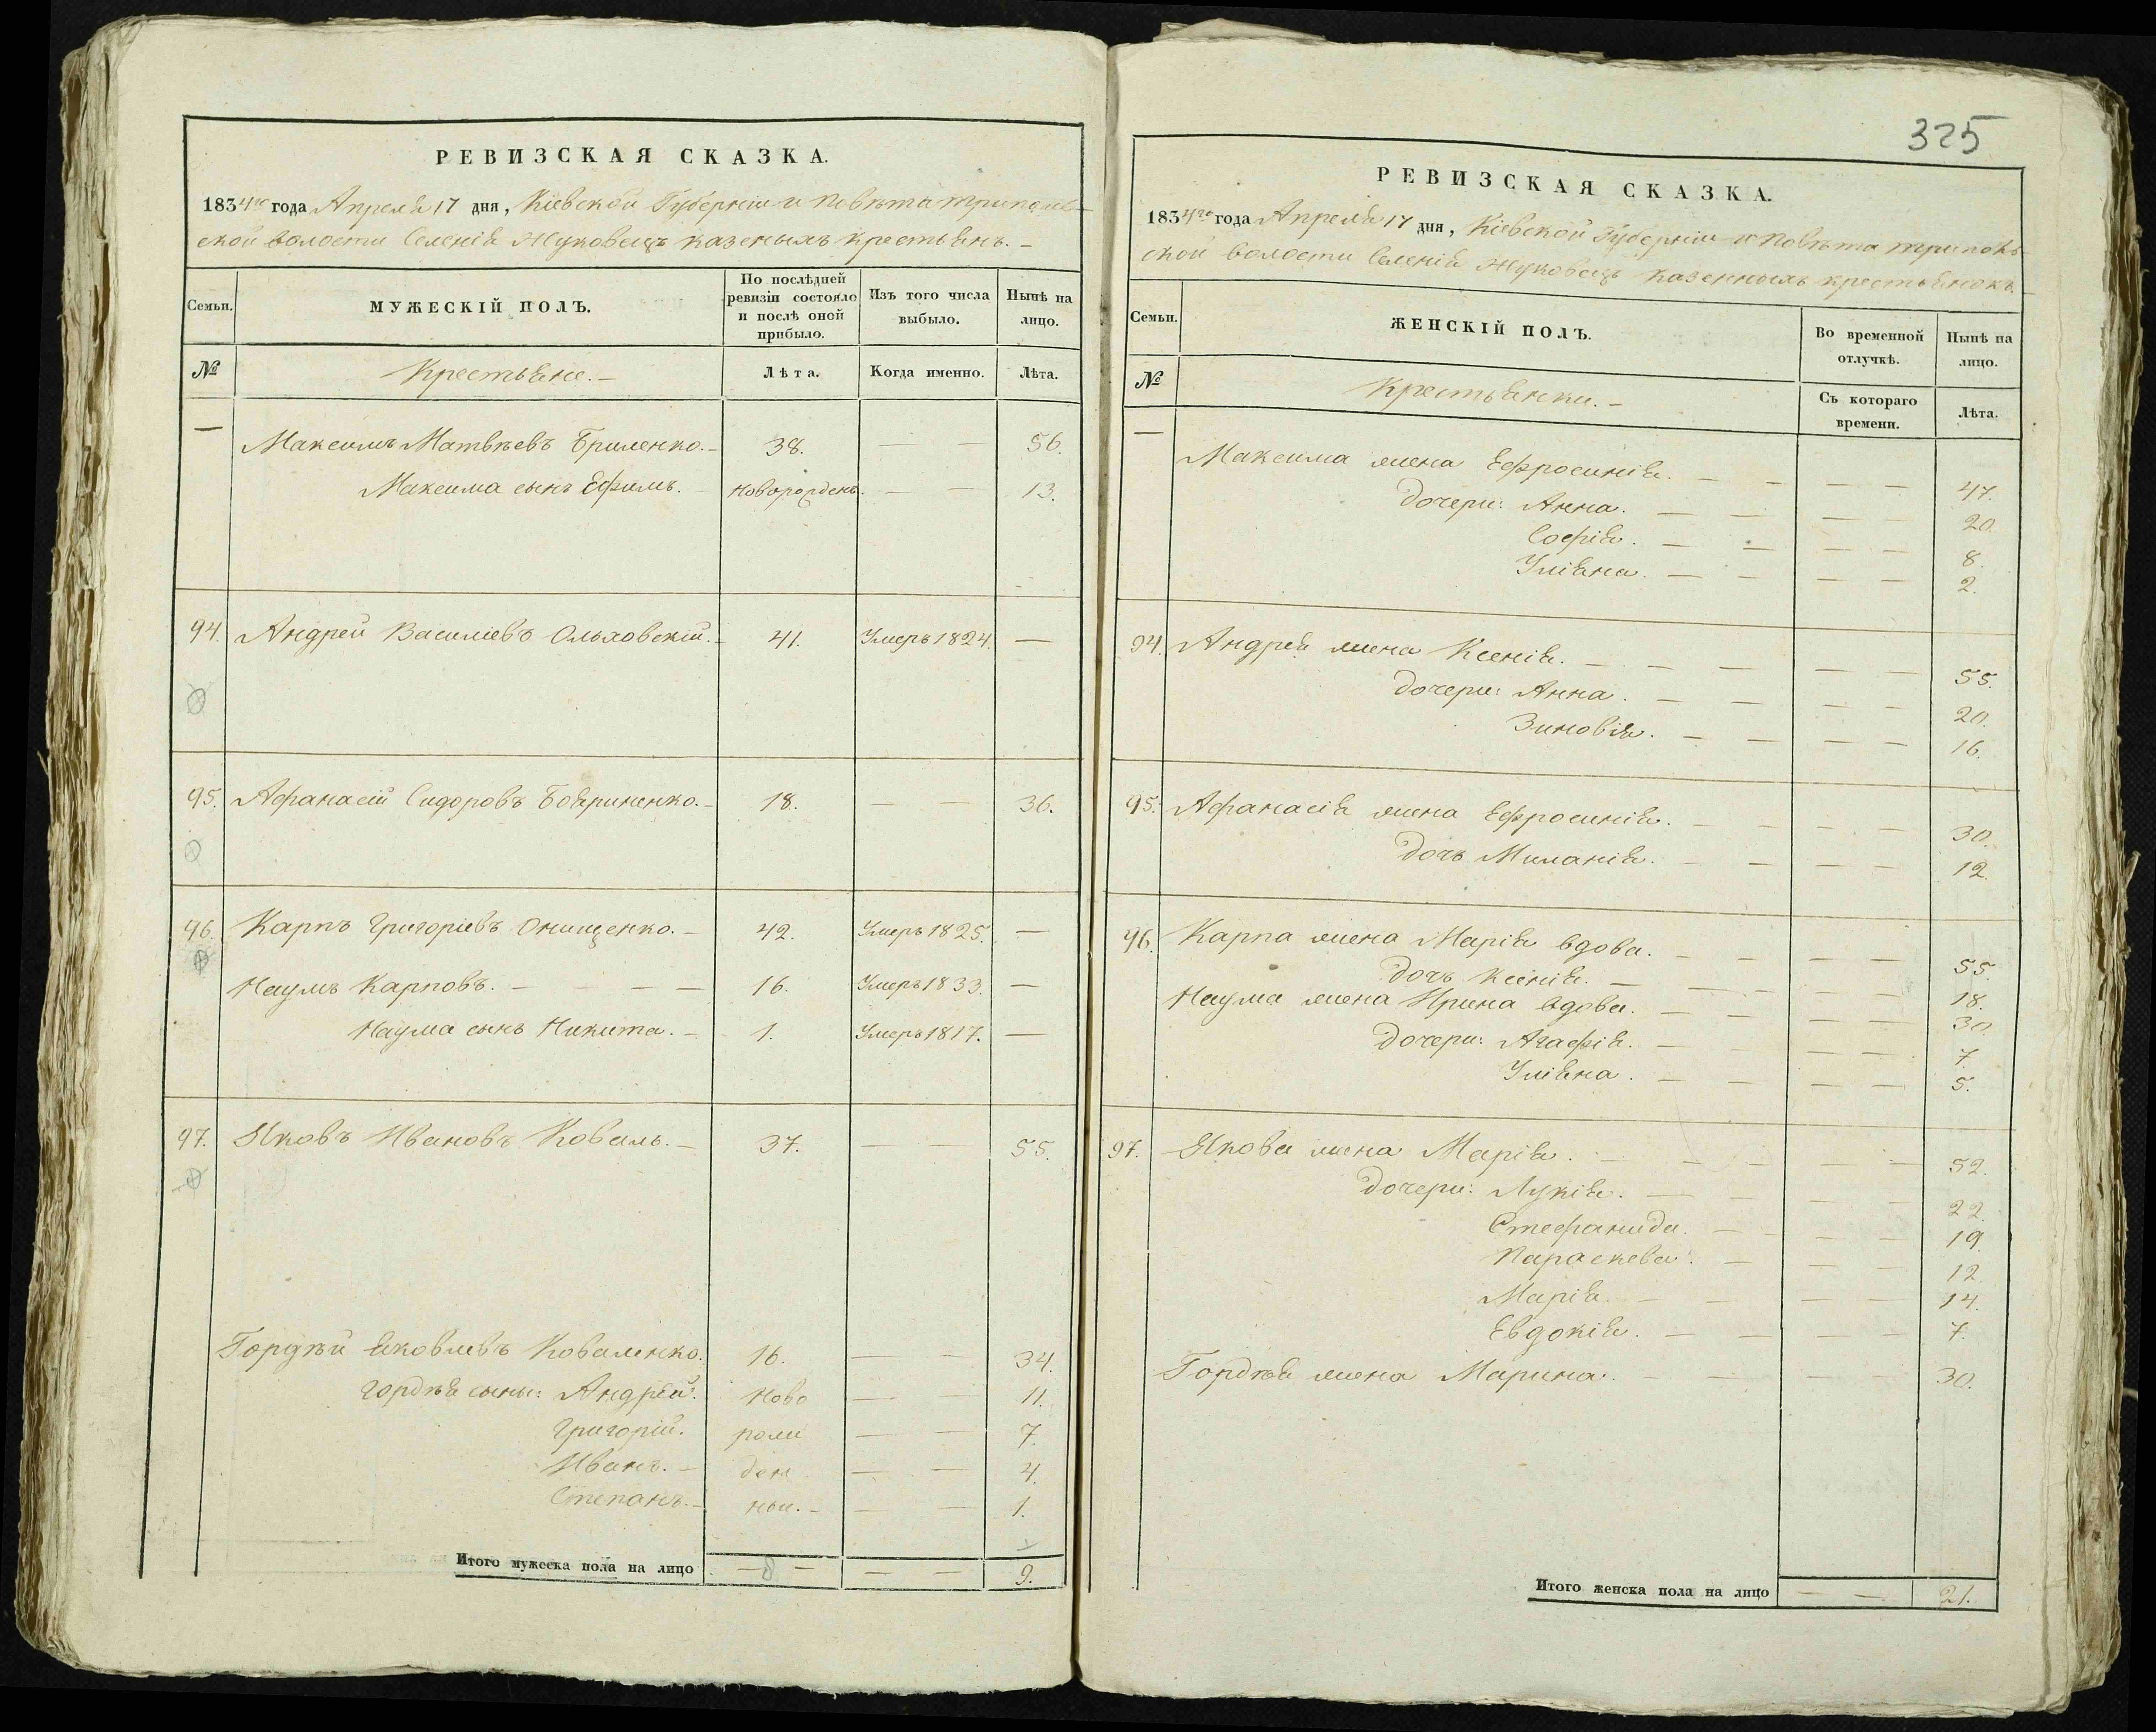 РЕВИЗСКАЯ СКАЗКА.
1834го года Апреля 17 дня, Кіевской Губерніи и Повѣта Триполь-
ской волости Селенія Жуковецъ казеныхъ крестьянъ.
Семьи.
МУЖЕСКІЙ ПОЛЪ.
По послѣдней ревизіи состояло и послѣ оной прибыло.
Изъ того числа выбыло.
Нынѣ на лицо.
№
Крестьяне.
Лѣта.
Когда именно.
Лѣта.
— Максимъ Матвѣевъ Бриленко. 38. — — 56.
Максима сынъ Ефимъ. новорожденъ. — — 13.
94. Андрей Василіевъ Ольховскій. 41. Умеръ 1824. —
95. Афанасій Сидоровъ Бояриненко. 18. — — 36.
96. Карпъ Григоріевъ Онищенко. 42. Умеръ 1825. —
Наумъ Карповъ. 16. Умеръ 1833. —
Наума сынъ Никита. 1. Умеръ 1817. —
97. Яковъ Ивановъ Коваль. 37. — — 55.
Гордѣй Яковлевъ Коваленко. 16. — — 34.
Гордѣя сыны: Андрей. ново — — 11.
Григорій. рож — — 7.
Иванъ. ден — — 4.
Степанъ. ные. — — 1.
Итого мужеска пола на лицо — 8 — — — 9.
325
РЕВИЗСКАЯ СКАЗКА.
1834го года Апреля 17 дня, Кіевской Губерніи и Повѣта Триполь-
ской волости Селенія Жуковецъ казенныхъ крестьянокъ.
Семьи.
ЖЕНСКІЙ ПОЛЪ.
Во временной отлучкѣ.
Нынѣ на лицо.
№
Крестьянки.
Съ котораго времени.
Лѣта.
— Максима жена Ефросинія. — — 47.
Дочери: Анна. — — 20.
Софія. — — 8.
Уліяна. — — 2.
94. Андрея жена Ксенія. — — 55.
Дочери: Анна. — — 20.
Зиновія. — — 16.
95. Афанасія жена Ефросинія. — — 30.
Дочь Миланія. — — 12.
96. Карпа жена Марія вдова. — — 55.
Дочь Ксенія. — — 18.
Наума жена Ирина вдова. — — 30.
Дочери: Агафія. — — 7.
Уліяна. — — 5.
97. Якова жена Марія. — — 52.
Дочери: Лукія. — — 22.
Стефанида. — — 19.
Параскева. — — 12.
Марія. — — 14.
Евдокія. — — 7.
Гордѣя жена Марина. — — 30.
Итого женска пола на лицо — — 21.